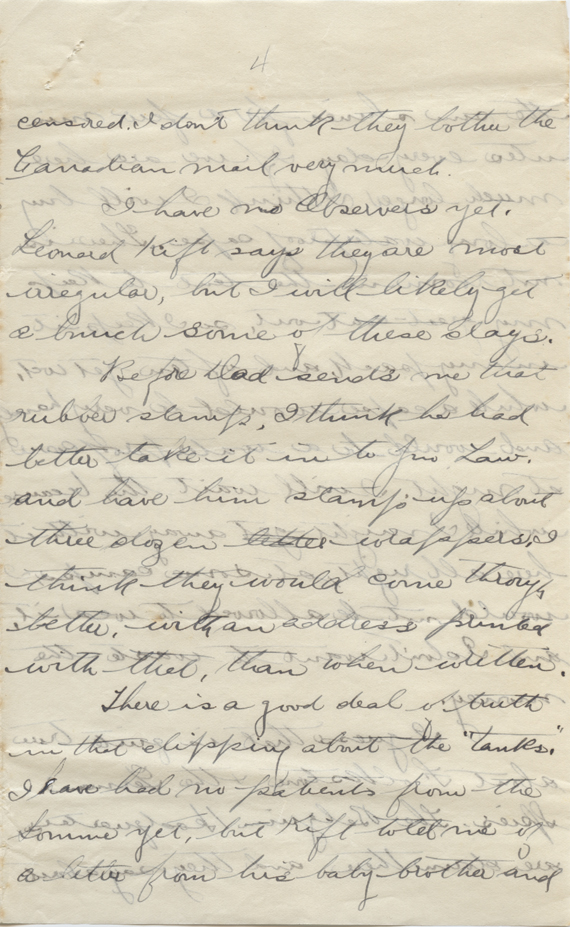 4
censored. I don't think they bother the
Canadian mail very much.
I have no Observers yet.
Leonard Kift says they are most
irregular, but I will likely get
a bunch some of these days.
Before Dad sends me that
rubber stamp, I think he had
better take it in to Jno Law.
and have him stamp up about
three dozen letter wrappers. I
think they would come through
better, with an address printed
with that, than when written.
There is a good deal of truth
in that clipping about the "tanks."
I have had no patients from the
Somme yet, but Kift told me of
a letter from his baby brother and